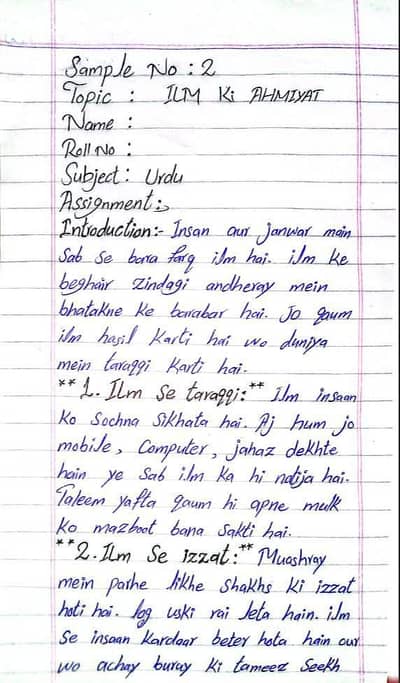 Sample No : 2
Topic : ILM Ki AHMIYAT
Name :
Roll No :
Subject : Urdu
Assignment :
Introduction:- Insan aur janwar main
sab se bara farq ilm hai. ilm ke
beghair zindagi andheray mein
bhatakne ke barabar hai. Jo qaum
ilm hasil karti hai wo duniya
mein taraqqi karti hai.
**1. Ilm se taraqqi:** Ilm insaan
ko Sochna Sikhata hai. Aj hum jo
mobile, Computer, jahaz dekhte
hain ye sab ilm ka hi natija hai.
Taleem yafta qaum hi apne mulk
ko mazboot bana sakti hai.
**2. Ilm Se izzat:** Muashray
mein parhe likhe shakhs ki izzat
hoti hai. log uski rai leta hain. ilm
se insaan kardaar beter hota hain our
wo achay buray ki tameez seekh